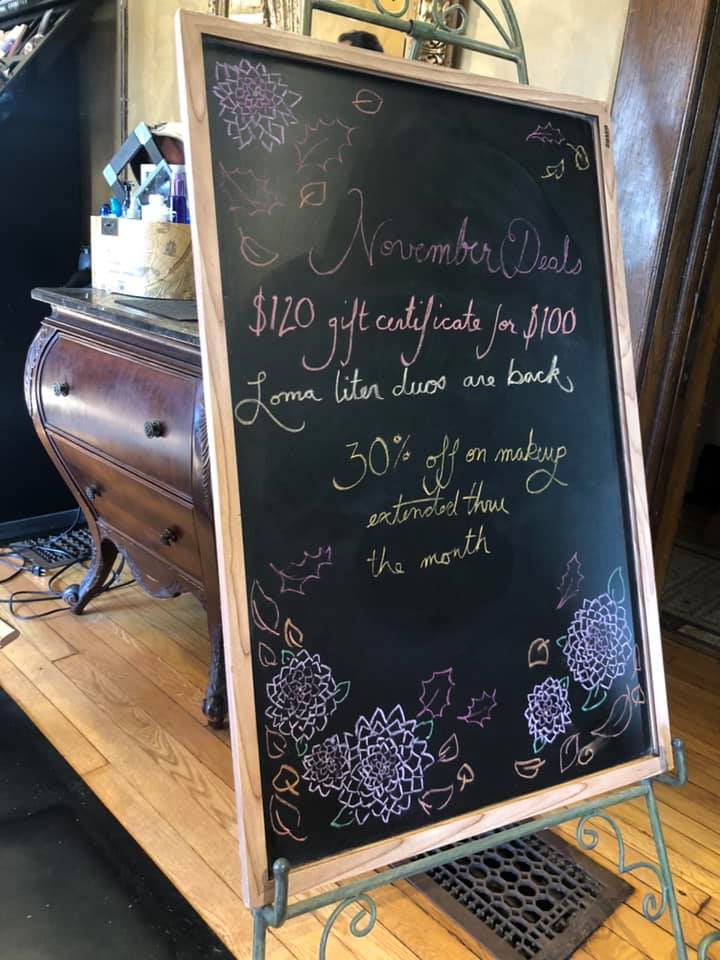 November Deals
$120 gift certificate for $100
Loma liter duos are back
30% off on makeup
extended thru
the month